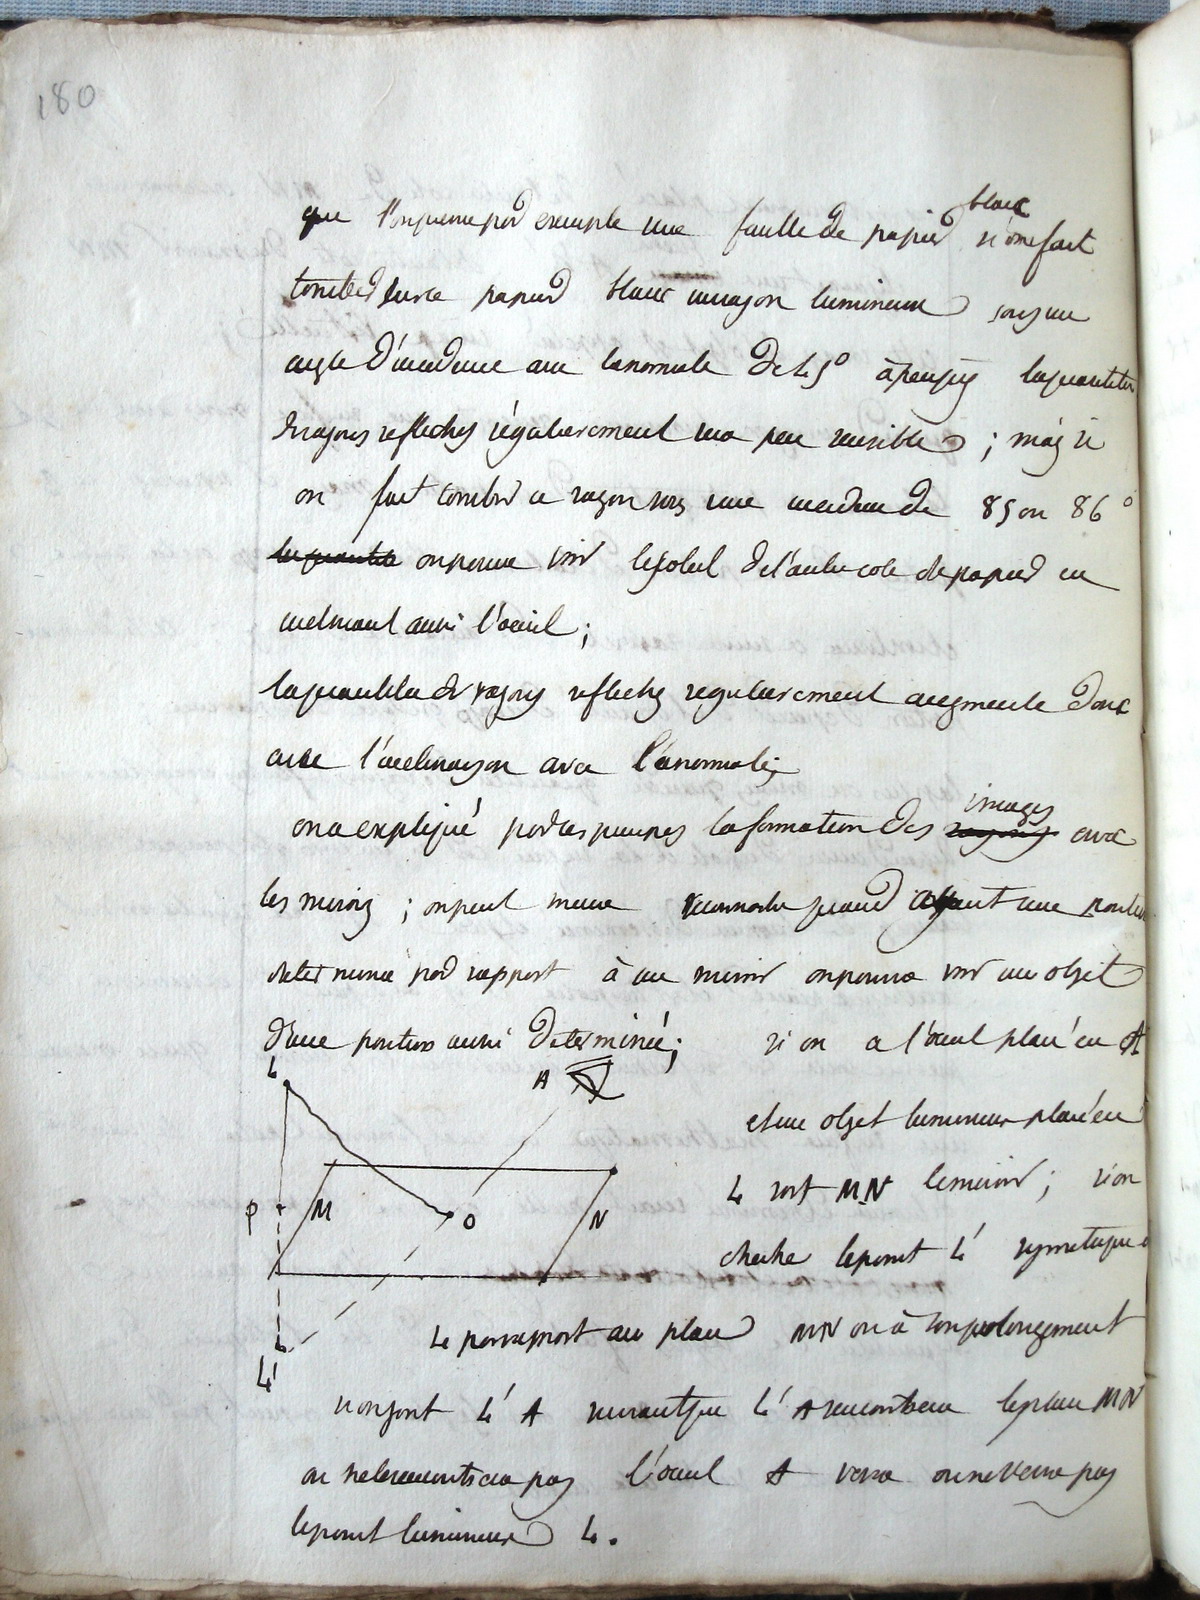 180
que l'on prenne par exemple une feuille de papier blanc si on fait
tomber sur ce papier blanc un rayon lumineux sous un
angle d'incidence avec la normale de 45° à peu près la quantité
de rayons reflechis régulierement sera peu sensible ; mais si
on fait tomber ce rayon sous une incidence de 85 ou 86°
la quantité on pourra voir le soleil de l'autre cote du papier en
inclinant aussi l'oeuil ;
la quantite de rayons reflechis regulierement augmente donc
avec l'inclinaison avec la normale ;
on a expliqué par ces principes la formation des rayons images avec
les miroirs ; on peut même reconnaitre quand ayant une position
determinée par rapport à un miroir on pourra voir un objet
d'une position aussi determinée ; si on a l'oeuil placé en A
et un objet lumineux placé en
L soit MN le miroir ; si on
cherche le point L' symetrique à
L par rapport au plan MN ou à son prolongement
si on joint L' A suivant que L' A rencontrera le plan MN
ou ne le rencontrera pas l'oeuil A verra ou ne verra pas
le point lumineux L.
L
A
P
M
O
N
L'